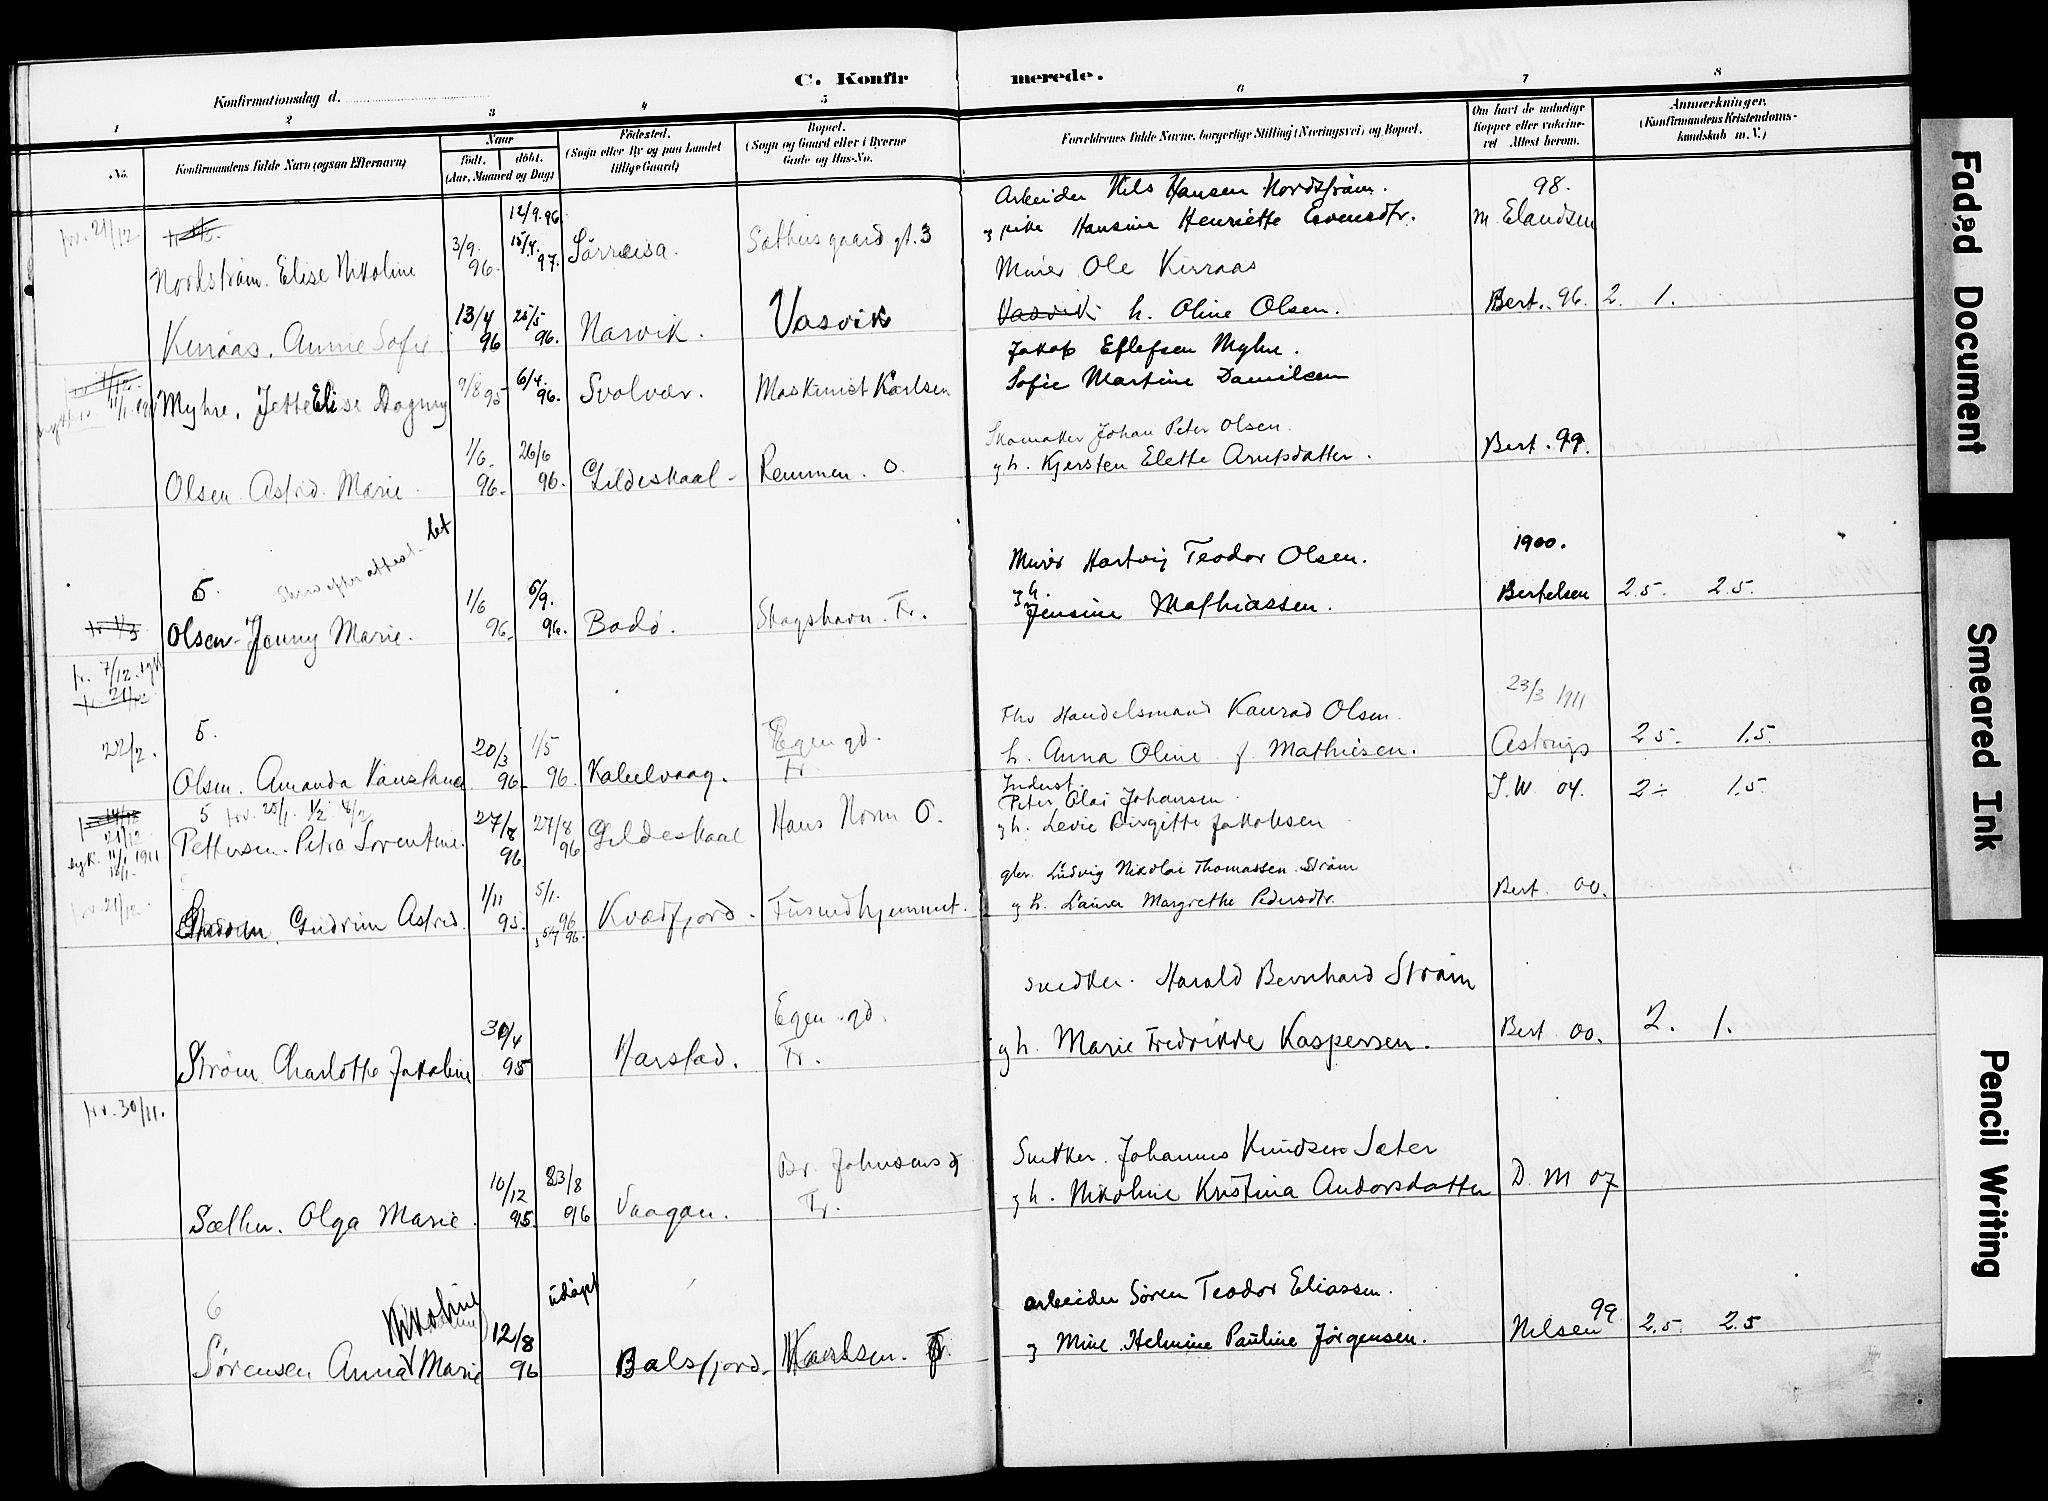 C. Konfirmerede.
Konfirmationsdag d.
1 2 3 4 5 6 7 8
No.
Konfirmandens fulde Navn (ogsaa Efternavn)
Naar
födt. döbt.
(Aar, Maaned og Dag)
Födested.
(Sogn eller By og paa Landet
tillige Gaard)
Bopæl.
(Sogn og Gaard eller i Byerne
Gade og Hus-No.
Forældrenes fulde Navne, borgerlige Stilling (Næringsvei) og Bopæl.
Om havt de naturlige
Kopper eller vakcine-
ret Attest herom.
Anmærkninger.
(Konfirmandens Kristendoms-
kundskab m. V.)
fr. 21/12
12/9. 96
Arbeider Nils Hansen Nordstrøm.
98.
Nordstrøm. Elise Nikoline
3/9. 96.
15/4. 97.
Sørreisa.
Sæthersgaard gt. 3
og pike Hansine Henriette Evensdtr.
M. Elandsen
Murer Ole Kirraas
Kirraas. Anne Sofie
13/4 96
25/5 96.
Narvik.
Vasvik
Vasvik h. Oline Olsen.
Bert. 96.
2. 1.
Jakob Eflefsen Myhre.
Myhre, Jette Elise Dagny
9/8 95
6/4. 96.
Svolvær.
Maskinist Karlsen
Sofie Martine Danilsen
Skomaker Johan Peter Olsen.
Olsen Astrid Marie.
1/6. 96.
26/6 96.
Gildeskaal
Remmen. O.
g h. Kjersten Elette Arntsdatter.
Bert. 99.
5.
Skriv efter attest
Murer Hartvig Teodor Olsen.
1900.
fr. 1/3
Olsen Jenny Marie.
1/6 96.
6/9. 96.
Bodö.
Stagshavn. Fr.
g h.
Jensine Mathiassen.
Bertelsen
2.5. 2.5.
fr. 7/12
fr. 21/12
22/2.
5.
Fhv Handelsmand Konrad Olsen.
23/3 1911
Olsen. Amanda Konstanse
20/3 96.
1/5 96.
Kabelvaag.
Egen gd.
Fr.
h. Anna Oline f. Mathiesen.
2.5. 1.5.
5 frv. 25/1. 1/2 8/2
21/12
syk. 11/1 1911
18/1.
Pettersen. Petra Sorentine.
27/8 96
27/8 96
Gildeskaal
Hans Horn O.
Indust.
Peter Olai Johansen.
g h. Levie Birgitte Jakobsen
J. W. 04.
2÷ 1.5.
frv. 21/12.
Gudrun Astrid.
1/11 95.
5/1. 96
5/7 96.
Kvædfjord.
gbr. Ludvig Nikolai Thomassen Strøm
g h. Laura Margrethe Pedersdtr.
Bert. 00.
Snedker. Harald Bernhard Strøm
Strøm Charlotte Jakobine
30/4 95
Harstad.
Egen gd.
Fr.
g h. Marie Fredrikke Kaspersen.
Bert 00.
2. 1.
frv. 30/11.
Snedker. Johannes Knudsen Sæter
Sæther. Olga Marie.
10/12 95.
23/8 96
Vaagan.
Br. Johnsens g
Fr.
g h. Nikoline Kristina Andorsdatter
D. M 07
6
Nikoline
udöpt
arbeider Søren Teodor Eliassen.
Sørensen Anna Marie
12/8 96
Balsfjord.
Karlsen. Fr.
g Mine Helmine Pauline Jørgensen.
Nilsen 99
2.5. 2.5
Faded Document
Smeared Ink
Pencil Writing